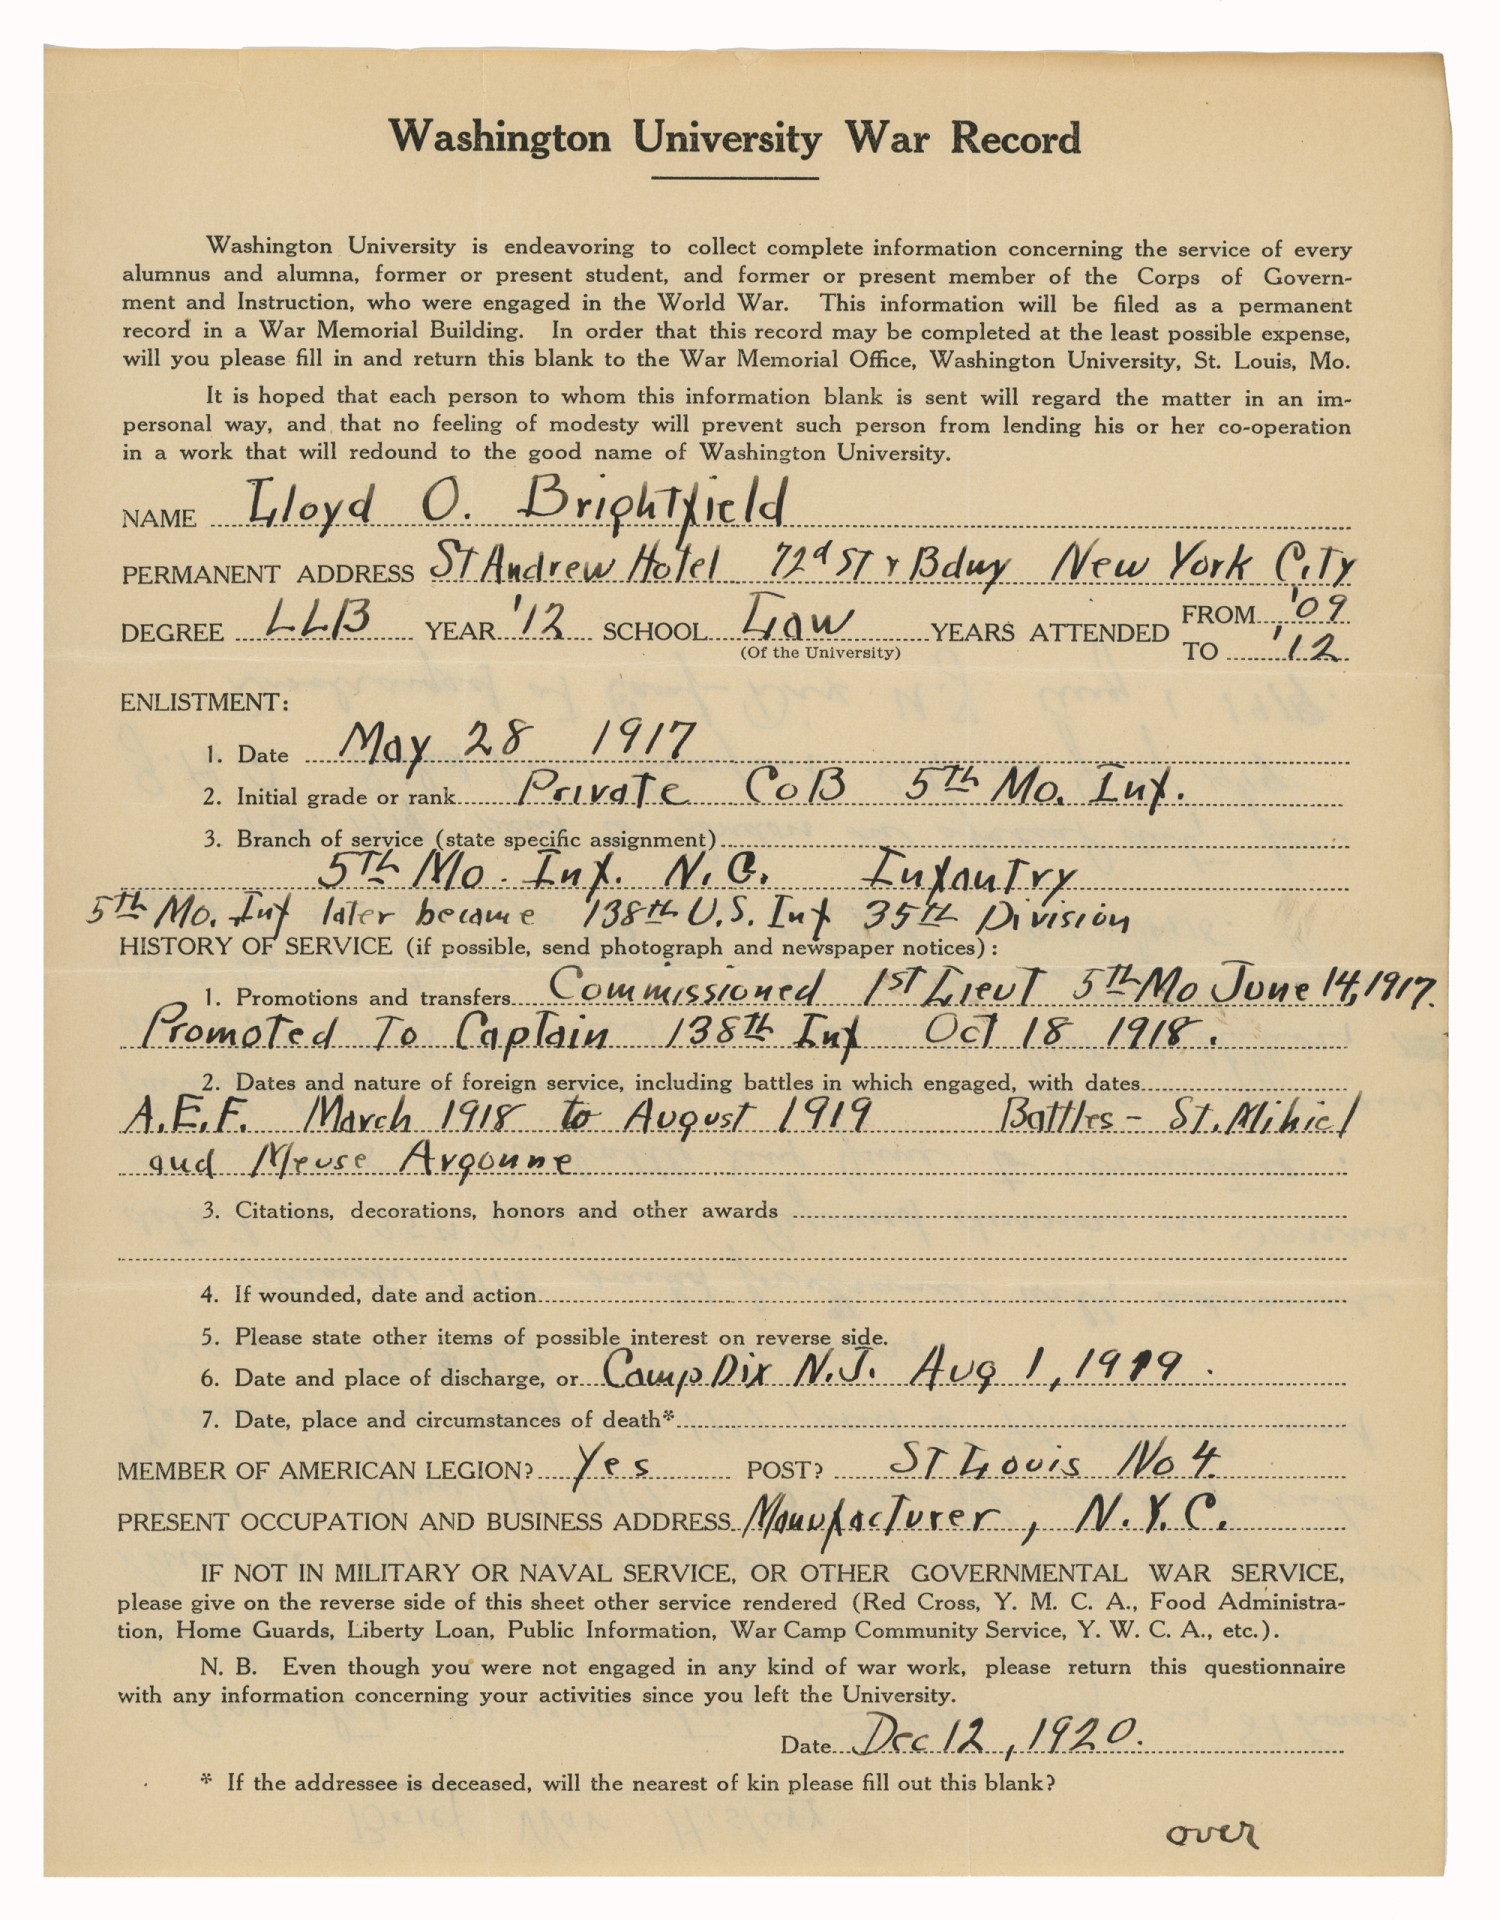 Washington University War Record
Washington University is endeavoring to collect complete information concerning the service of every
alumnus and alumna, former or present student, and former or present member of the Corps of Govern-
ment and Instruction, who were engaged in the World War. This information will be filed as a permanent
record in a War Memorial Building. In order that this record may be completed at the least possible expense,
will you please fill in and return this blank to the War Memorial Office, Washington University, St. Louis, Mo.
It is hoped that each person to whom this information blank is sent will regard the matter in an im-
personal way, and that no feeling of modesty will prevent such person from lending his or her co-operation
in a work that will redound to the good name of Washington University.
NAME Lloyd O. Brightfield
PERMANENT ADDRESS St Andrew Hotel 72d St & Bdwy New York City
DEGREE LLB YEAR '12 SCHOOL Law YEARS ATTENDED FROM '09
(Of the University) TO '12
ENLISTMENT:
1. Date May 28 1917
2. Initial grade or rank Private Co B 5th Mo. Inf.
3. Branch of service (state specific assignment)
5th Mo. Inf. N.G. Infantry
5th Mo. Inf later became 138th U.S. Inf 35th Division
HISTORY OF SERVICE (if possible, send photograph and newspaper notices):
1. Promotions and transfers Commissioned 1st Lieut 5th Mo June 14, 1917.
Promoted To Captain 138th Inf Oct 18 1918.
2. Dates and nature of foreign service, including battles in which engaged, with dates
A.E.F. March 1918 to August 1919 Battles - St. Mihiel
and Meuse Argonne
3. Citations, decorations, honors and other awards
4. If wounded, date and action
5. Please state other items of possible interest on reverse side.
6. Date and place of discharge, or Camp Dix N.J. Aug 1, 1919.
7. Date, place and circumstances of death*
MEMBER OF AMERICAN LEGION? Yes POST? St Louis No 4.
PRESENT OCCUPATION AND BUSINESS ADDRESS Manufacturer, N.Y.C.
IF NOT IN MILITARY OR NAVAL SERVICE, OR OTHER GOVERNMENTAL WAR SERVICE,
please give on the reverse side of this sheet other service rendered (Red Cross, Y. M. C. A., Food Administra-
tion, Home Guards, Liberty Loan, Public Information, War Camp Community Service, Y. W. C. A., etc.).
N. B. Even though you were not engaged in any kind of war work, please return this questionnaire
with any information concerning your activities since you left the University.
Date Dec 12, 1920.
* If the addressee is deceased, will the nearest of kin please fill out this blank?
over